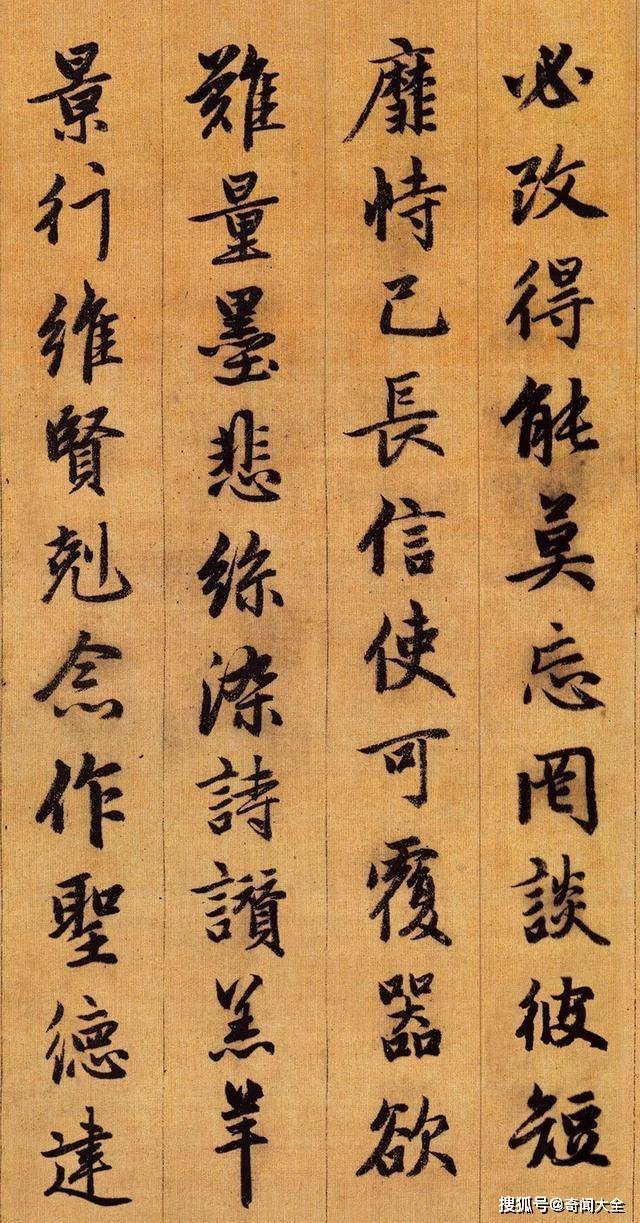 必改得能莫忘罔談彼短
靡恃己長信使可覆器欲
難量墨悲絲染詩讚羔羊
景行維賢剋念作聖德建
搜狐号@奇闻大全